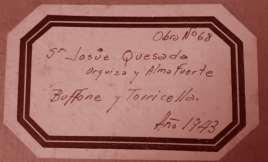 Obra Nº 68
Sr Josùe Quesada
Urquiza y Alma Fuerte
Buffone y Torricella.
Año 1943